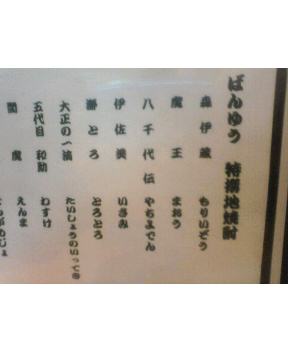 ばんゆう 特撰地焼酎
森伊蔵 もりいぞう
魔王 まおう
八千代伝 やちよでん
伊佐美 いさみ
とろ とろとろ
大正の一滴 たいしょうのいってき
五代目 和助 わすけ
閻魔 えんま